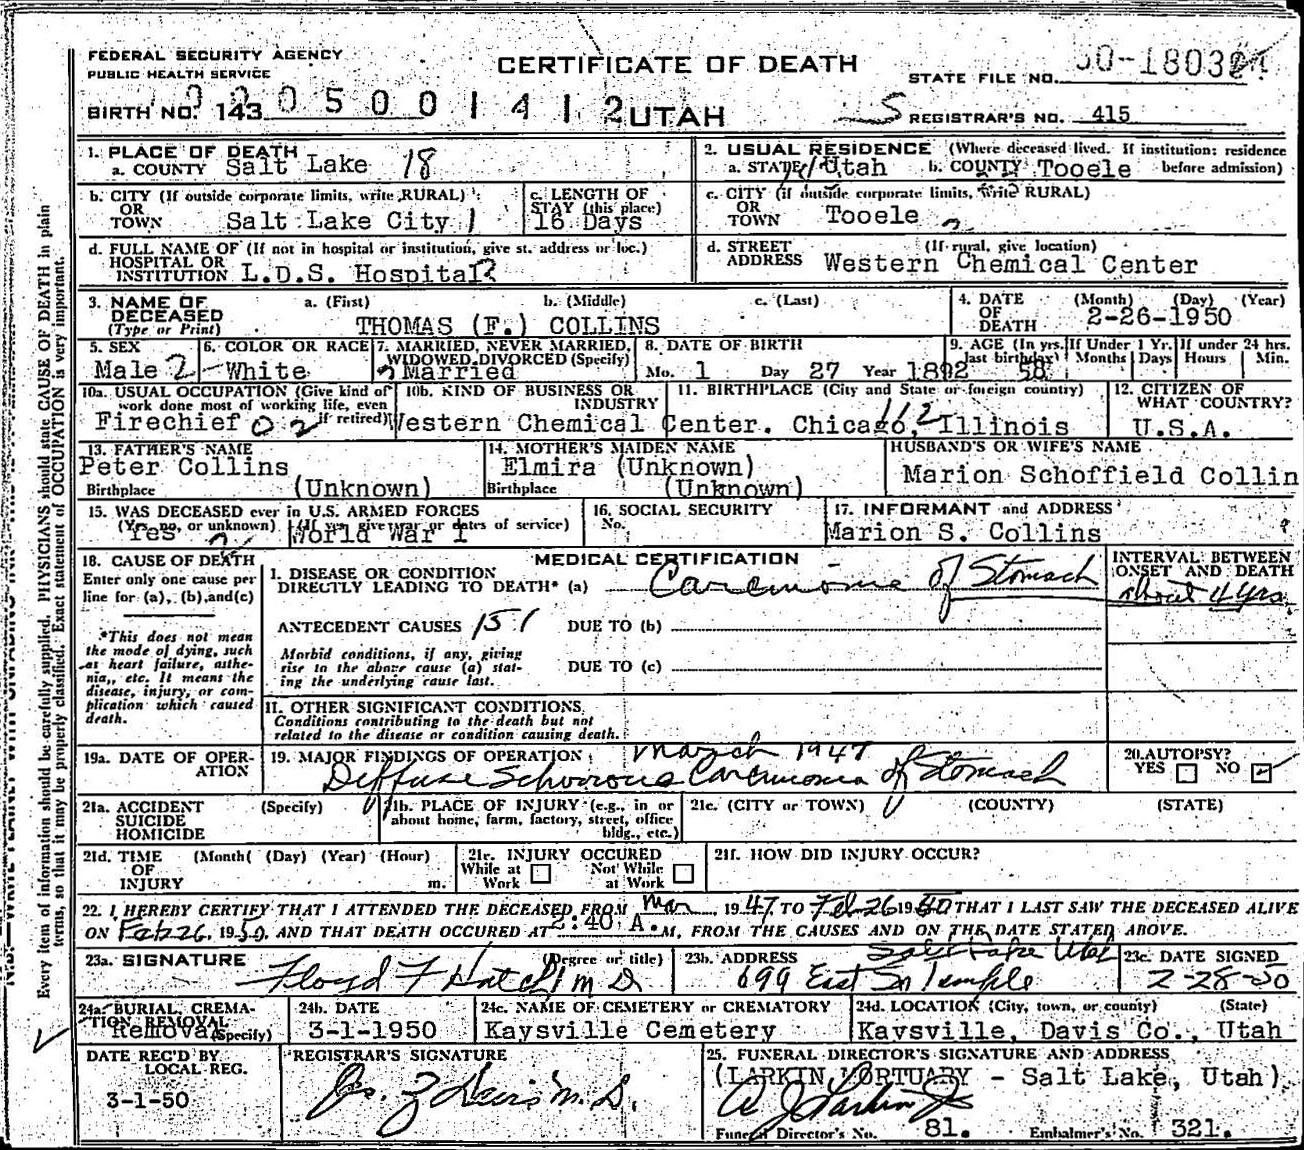 FEDERAL SECURITY AGENCY
PUBLIC HEALTH SERVICE
CERTIFICATE OF DEATH
STATE FILE NO.
BIRTH NO. 143
UTAH
REGISTRAR'S NO. 415
1. PLACE OF DEATH
a. COUNTY Salt Lake 18
2. USUAL RESIDENCE (Where deceased lived. If institution: residence before admission)
a. STATE Utah b. COUNTY Tooele
b. CITY (If outside corporate limits, write RURAL)
OR
TOWN Salt Lake City 1
c. LENGTH OF STAY (this place)
16 Days
c. CITY (if outside corporate limits, write RURAL)
OR
TOWN Tooele
d. FULL NAME OF (If not in hospital or institution, give st. address or loc.)
HOSPITAL OR
INSTITUTION L.D.S. Hospital
d. STREET ADDRESS (If rural, give location)
Western Chemical Center
3. NAME OF DECEASED
(Type or Print)
a. (First) b. (Middle) c. (Last)
THOMAS (F.) COLLINS
4. DATE OF DEATH (Month) (Day) (Year)
2-26-1950
5. SEX
Male 2
6. COLOR OR RACE
White
7. MARRIED, NEVER MARRIED, WIDOWED, DIVORCED (Specify)
Married
8. DATE OF BIRTH
Mo. 1 Day 27 Year 1892
9. AGE (In yrs. last birthday) If Under 1 Yr. Months Days If under 24 hrs. Hours Min.
58
10a. USUAL OCCUPATION (Give kind of work done most of working life, even if retired)
Firechief 02
10b. KIND OF BUSINESS OR INDUSTRY
Western Chemical Center.
11. BIRTHPLACE (City and State or foreign country)
Chicago, Illinois
112
12. CITIZEN OF WHAT COUNTRY?
U.S.A.
13. FATHER'S NAME
Peter Collins
Birthplace (Unknown)
14. MOTHER'S MAIDEN NAME
Elmira (Unknown)
Birthplace (Unknown)
HUSBAND'S OR WIFE'S NAME
Marion Schoffield Collin
15. WAS DECEASED ever in U.S. ARMED FORCES
(Yes, no, or unknown) (If yes give war or dates of service)
Yes World War I
16. SOCIAL SECURITY
No.
17. INFORMANT and ADDRESS
Marion S. Collins
18. CAUSE OF DEATH
Enter only one cause per
line for (a), (b), and (c)
*This does not mean
the mode of dying, such
as heart failure, asthe-
nia, etc. It means the
disease, injury, or com-
plication which caused
death.
MEDICAL CERTIFICATION
I. DISEASE OR CONDITION
DIRECTLY LEADING TO DEATH* (a) Carcinoma of Stomach
INTERVAL BETWEEN ONSET AND DEATH
about 4 yrs.
ANTECEDENT CAUSES 151 DUE TO (b)
Morbid conditions, if any, giving
rise to the above cause (a) stat-
ing the underlying cause last.
DUE TO (c)
II. OTHER SIGNIFICANT CONDITIONS
Conditions contributing to the death but not
related to the disease or condition causing death.
19a. DATE OF OPERATION
19. MAJOR FINDINGS OF OPERATION March 1947
Diffuse Schirrous Carcinoma of Stomach
20. AUTOPSY?
YES NO
21a. ACCIDENT (Specify)
SUICIDE
HOMICIDE
21b. PLACE OF INJURY (e.g., in or about home, farm, factory, street, office bldg., etc.)
21c. (CITY or TOWN) (COUNTY) (STATE)
21d. TIME (Month) (Day) (Year) (Hour)
OF
INJURY m.
21e. INJURY OCCURED
While at Work Not While at Work
21f. HOW DID INJURY OCCUR?
22. I HEREBY CERTIFY THAT I ATTENDED THE DECEASED FROM Mar, 1947 TO Feb 26 1950 THAT I LAST SAW THE DECEASED ALIVE
ON Feb 26, 1950, AND THAT DEATH OCCURED AT 2:40 A.M, FROM THE CAUSES AND ON THE DATE STATED ABOVE.
23a. SIGNATURE (Degree or title)
Floyd F Hatch M D
23b. ADDRESS Salt Lake Utah
699 East So Temple
23c. DATE SIGNED
2-28-50
24a. BURIAL, CREMATION, REMOVAL (Specify)
Removal
24b. DATE
3-1-1950
24c. NAME OF CEMETERY OR CREMATORY
Kaysville Cemetery
24d. LOCATION (City, town, or county) (State)
Kaysville, Davis Co., Utah
DATE REC'D BY LOCAL REG.
3-1-50
REGISTRAR'S SIGNATURE
25. FUNERAL DIRECTOR'S SIGNATURE AND ADDRESS
(LARKIN MORTUARY - Salt Lake, Utah)
Funeral Director's No. 81. Embalmer's No. 321.
Every item of information should be carefully supplied. PHYSICIANS should state CAUSE OF DEATH in plain
terms, so that it may be properly classified. Exact statement of OCCUPATION is very important.